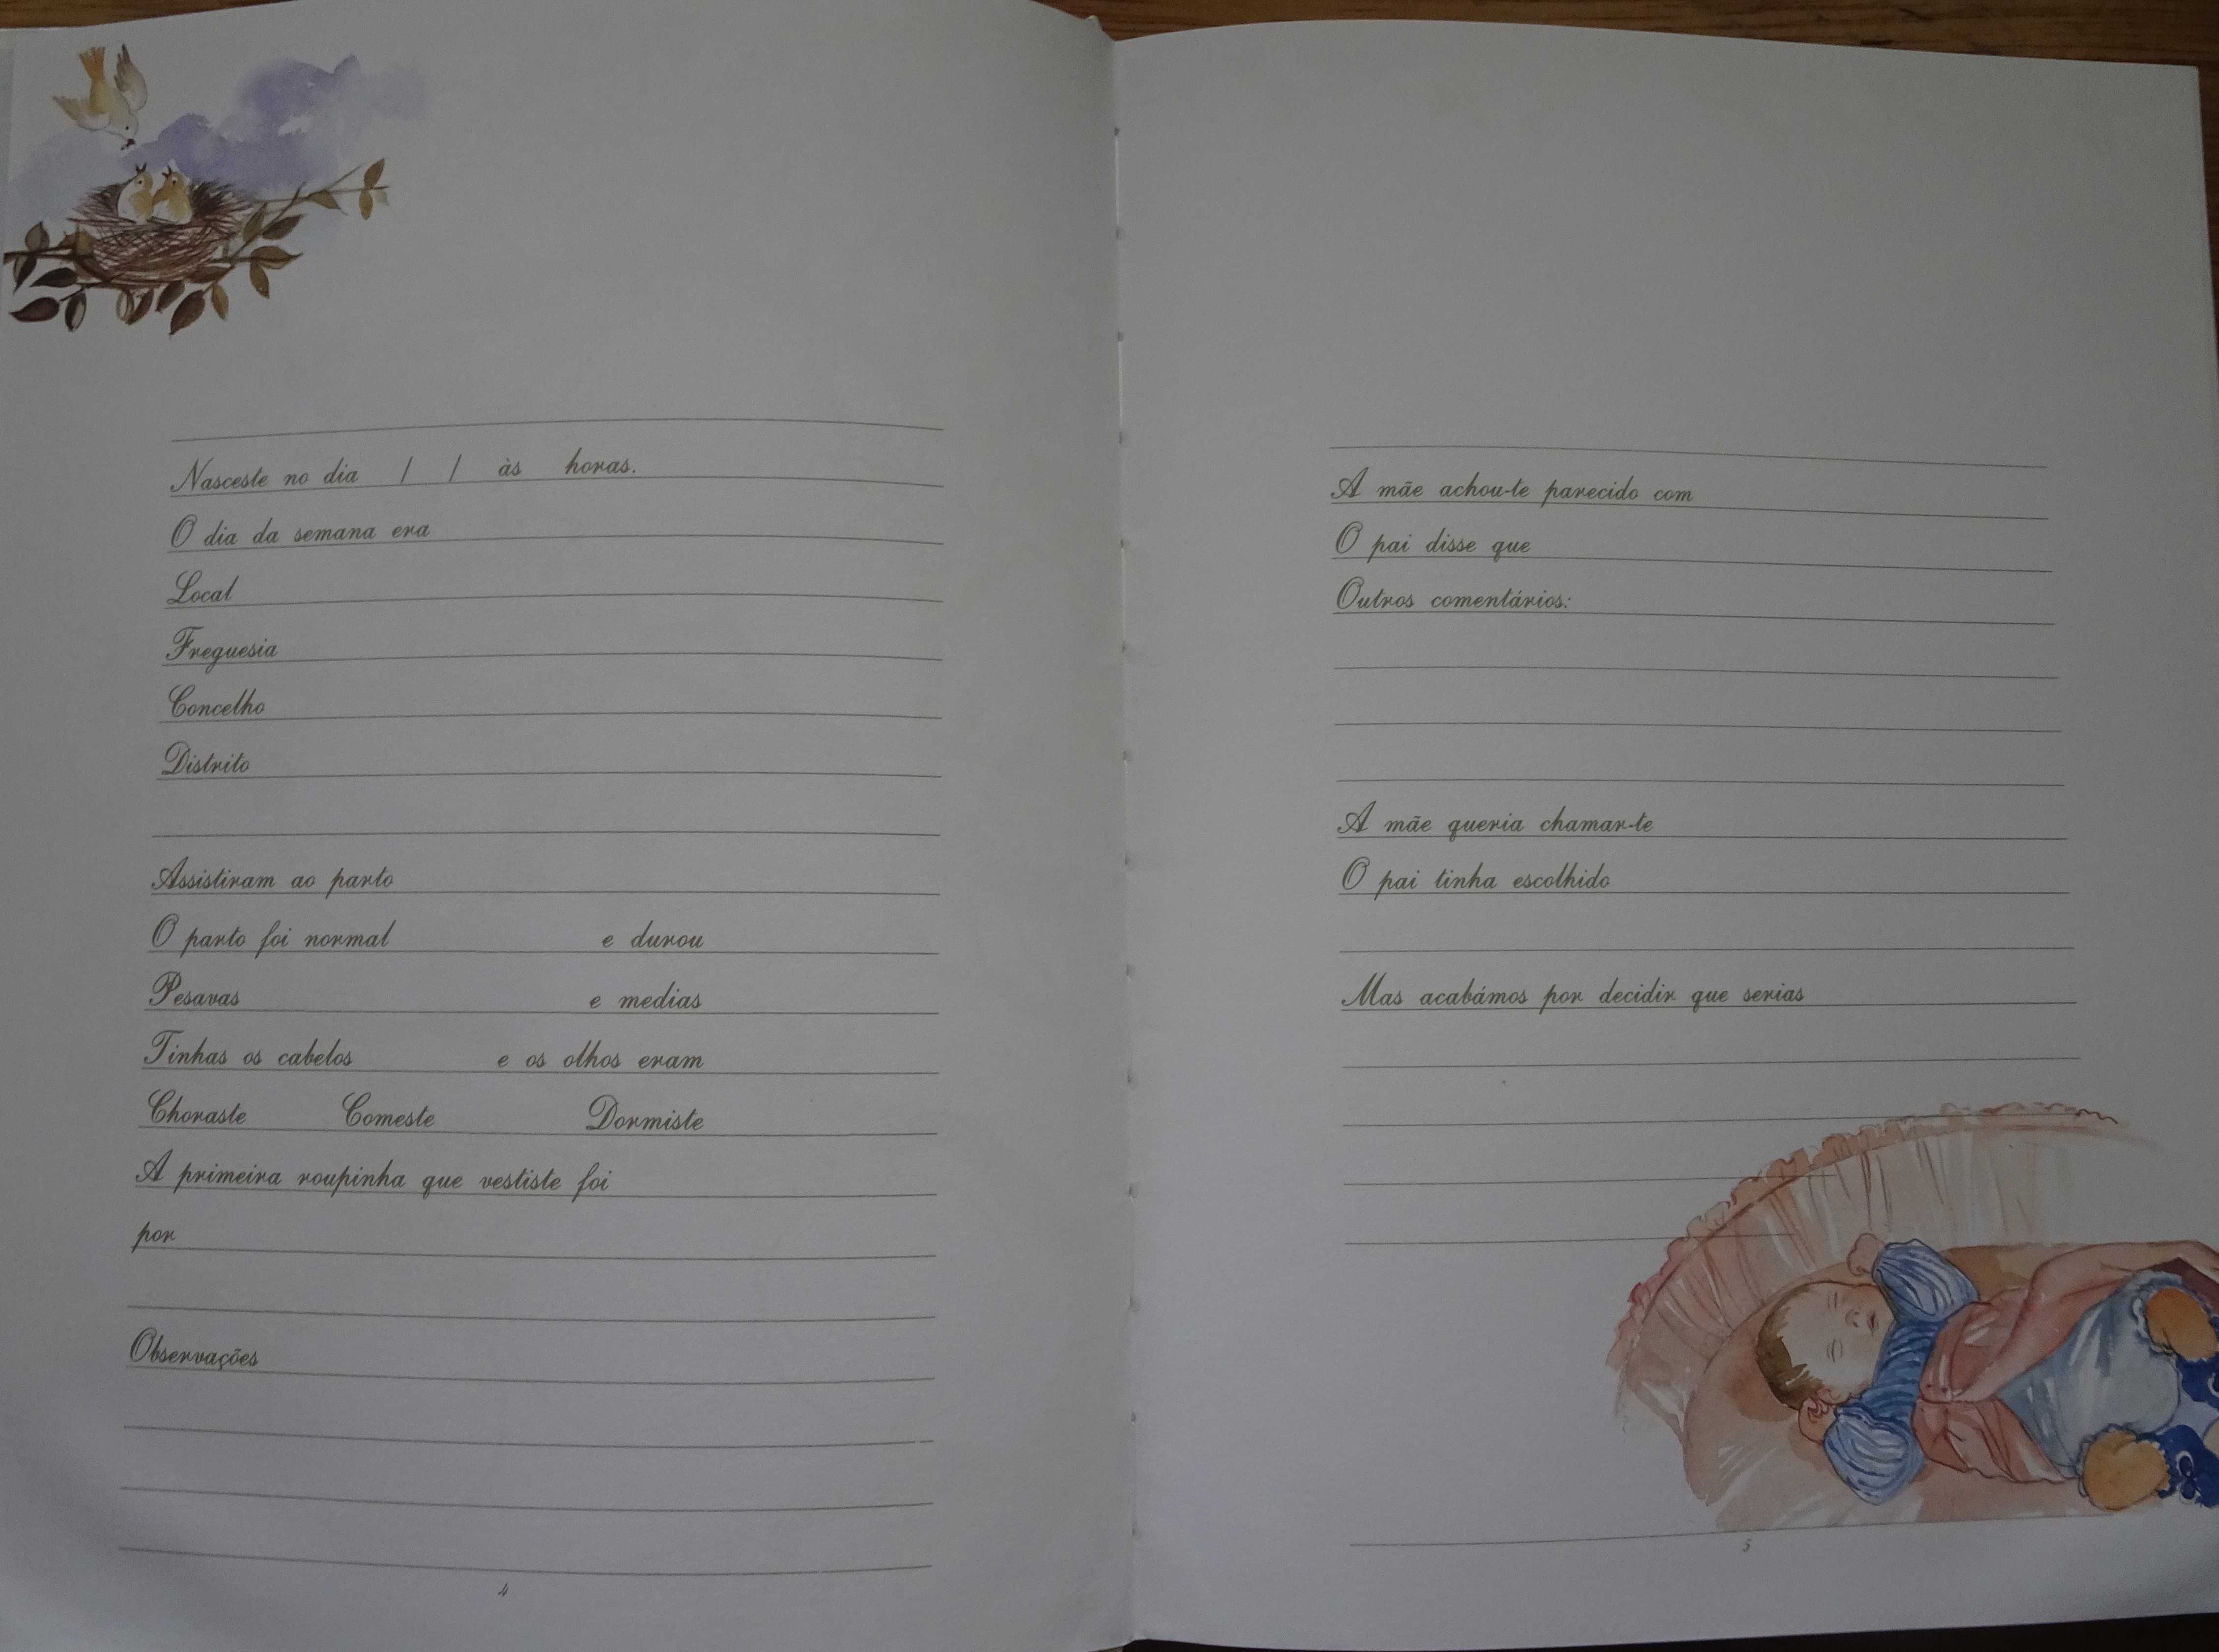 Nasceste no dia / / às horas.
O dia da semana era
Local
Freguesia
Concelho
Distrito
Assistiram ao parto
O parto foi normal e durou
Pesavas e medias
Tinhas os cabelos e os olhos eram
Choraste Comeste Dormiste
A primeira roupinha que vestiste foi
por
Observações
4
A mãe achou-te parecido com
O pai disse que
Outros comentários:
A mãe queria chamar-te
O pai tinha escolhido
Mas acabámos por decidir que serias
5